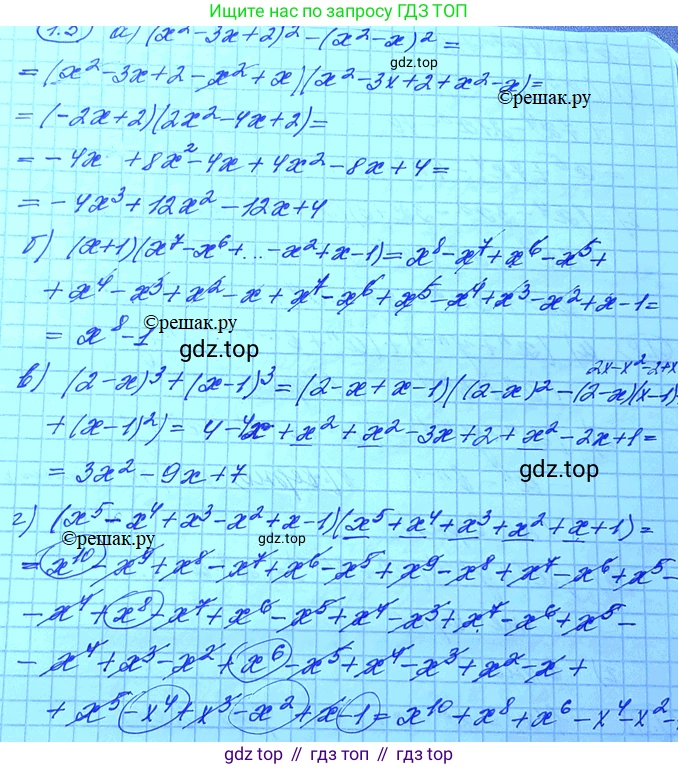 Ищите ответы по запросу ГДЗ ТОП
1.2) а) (x² - 3x + 2)² - (x² - x)² =
= (x² - 3x + 2 - x² + x)(x² - 3x + 2 + x² - x) =
gdz.top
©решак.ру
= (-2x + 2)(2x² - 4x + 2) =
= - 4x + 8x² - 4x + 4x² - 8x + 4 =
= - 4x³ + 12x² - 12x + 4
б) (x+1)(x⁷ - x⁶ + ... - x² + x - 1) = x⁸ - x⁷ + x⁶ - x⁵ +
+ x⁴ - x³ + x² - x + x⁷ - x⁶ + x⁵ - x⁴ + x³ - x² + x - 1 =
= x⁸ - 1
©решак.ру
gdz.top
2x - x² - 2 + x
в) (2-x)³ + (x-1)³ = (2 - x + x - 1)((2-x)² - (2-x)(x-1)
+ (x-1)²) = 4 - 4x + x² + x² - 3x + 2 + x² - 2x + 1 =
= 3x² - 9x + 7
gdz.top
г) (x⁵ - x⁴ + x³ - x² + x - 1)(x⁵ + x⁴ + x³ + x² + x + 1) =
©решак.ру
gdz.top
©решак.ру
= x¹⁰ - x⁹ + x⁸ - x⁷ + x⁶ - x⁵ + x⁹ - x⁸ + x⁷ - x⁶ + x⁵ -
- x⁴ + x⁸ - x⁷ + x⁶ - x⁵ + x⁴ - x³ + x⁷ - x⁶ + x⁵ -
- x⁴ + x³ - x² + x⁶ - x⁵ + x⁴ - x³ + x² - x +
+ x⁵ - x⁴ + x³ - x² + x - 1 = x¹⁰ + x⁸ + x⁶ - x⁴ - x² -
gdz.top // гдз топ // gdz.top